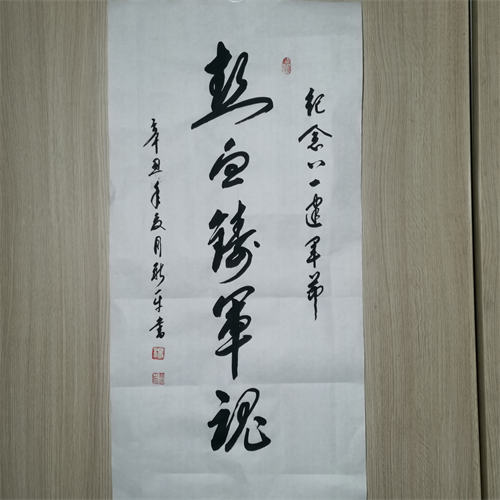 纪念八一建军节
热血铸軍魂
辛丑年夏月新平書